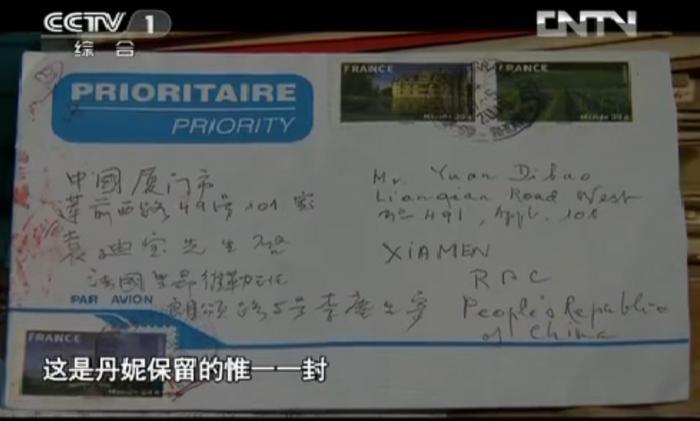 CCTV 1
综合
CNTV
PRIORITAIRE
PRIORITY
FRANCE
Monde 20g
FRANCE
Monde 20g
中國厦门市
蓮前西路491号101室
袁迪宝先生啓
法國里昂維勒
朗頌路5号李唐生寄
Mr. Yuan Dibao
Lianqian Road West
n° 491, Appt. 101
XIAMEN
RPC
People's Republic
of China
PAR AVION
FRANCE
这是丹妮保留的惟一一封